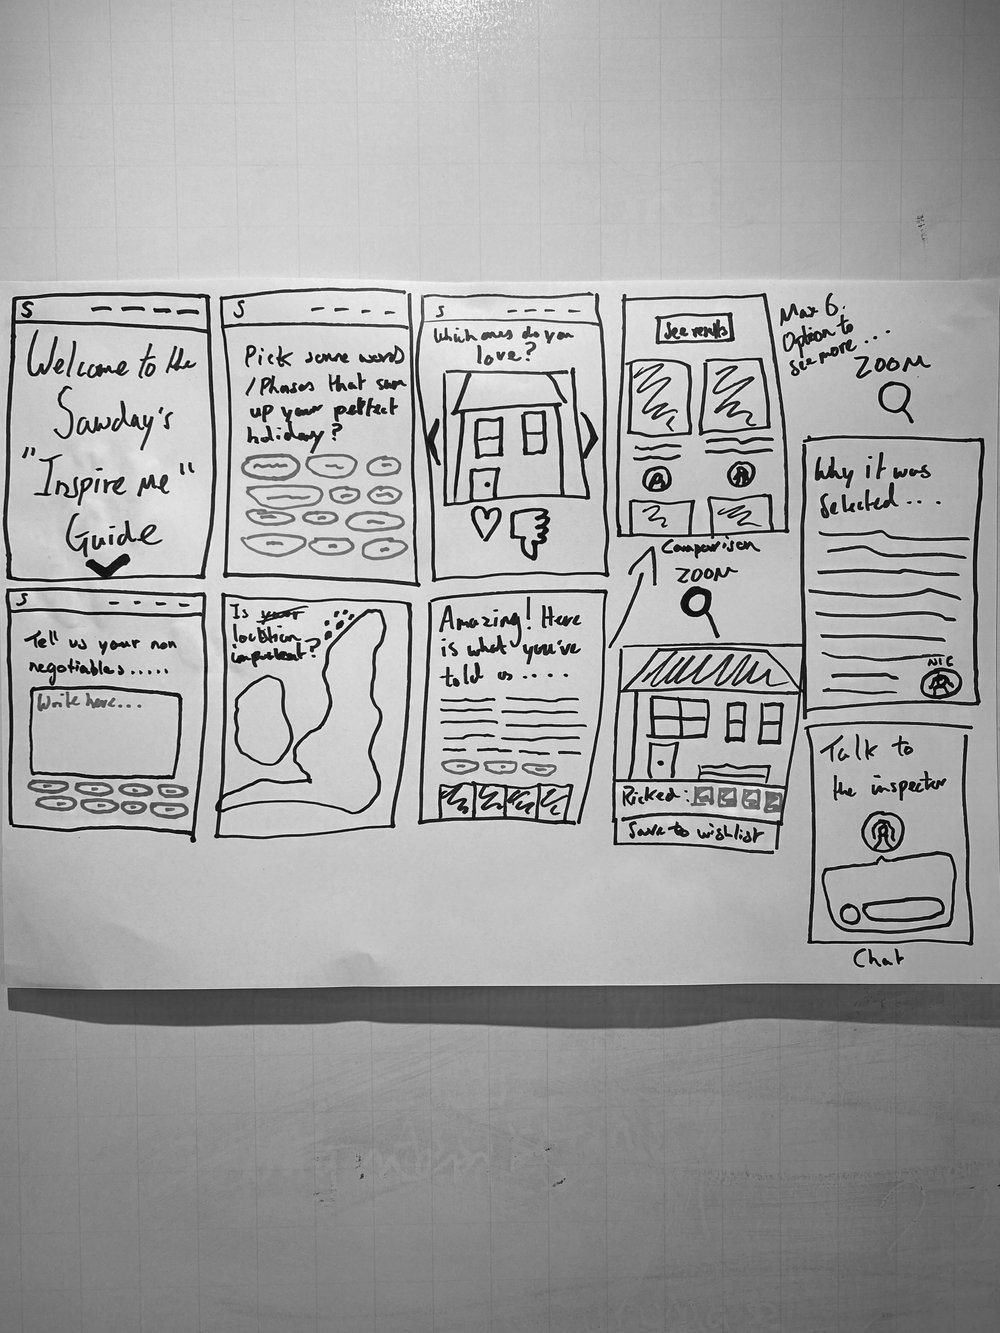 S
Welcome to the
Sawday's
"Inspire me"
Guide
S
Pick some words
/Phrases that sum
up your perfect
holiday?
S
Which ones do you
love?
See results
Max 6.
Option to
see more...
ZOOM
Comparison
ZOOM
Why it was
selected....
NIC
S
Tell us your non
negotiables.....
Write here...
Is your
location
important?
Amazing! Here
is what you've
told us....
Picked:
Save to wishlist
Talk to
the inspector
Chat